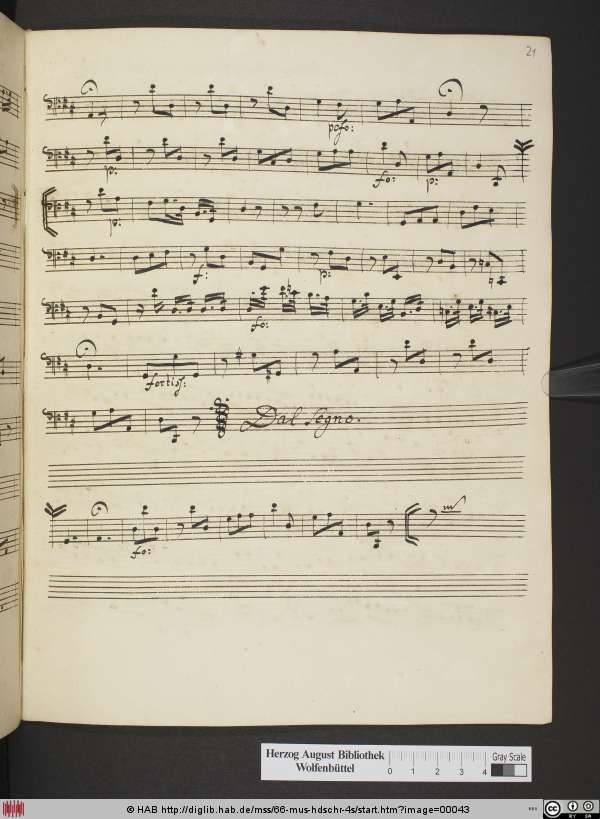 21
pofo:
p:
fo: p:
p:
f: p:
fo:
fortiss:
Dal Segno.
fo:
Herzog August Bibliothek
Wolfenbüttel
0 1 2 3 4
Gray Scale
© HAB http://diglib.hab.de/mss/66-mus-hdschr-4s/start.htm?image=00043
BY SA